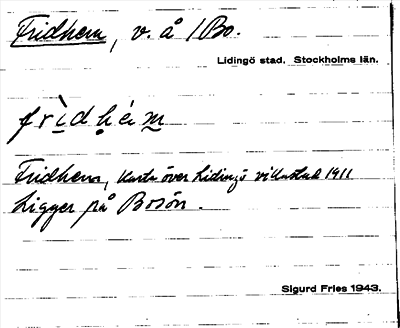 Fridhem, v. å 1 Bo.
Lidingö stad. Stockholms län.
frìdhém
Fridhem, Karta över Lidingö villastad 1911
Ligger på Bosön.
Sigurd Fries 1943.